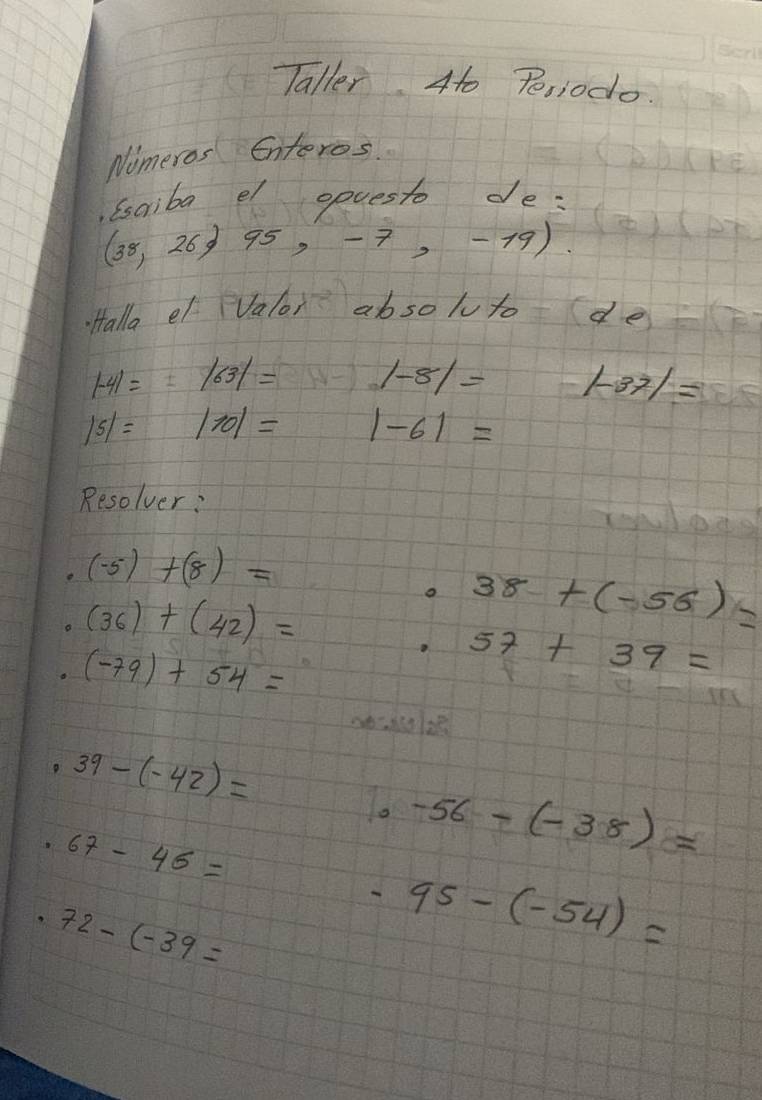 Taller. 4to Periodo.
Números Enteros.
. Escriba el opuesto de:
(38, 26, 95, -7, -19).
. Halla el Valor absoluto de
|-4|= |63|= |-8|= |-37|=
|5|= |10|= |-6|=
Resolver:
. (-5) +(8) = . 38 +(-56)=
. (36) + (42) = . 57 + 39 =
. (-79) + 54 =
. 39-(-42)= . -56 -(-38) =
. 67 - 46 = - 95-(-54) =
. 72-(-39=